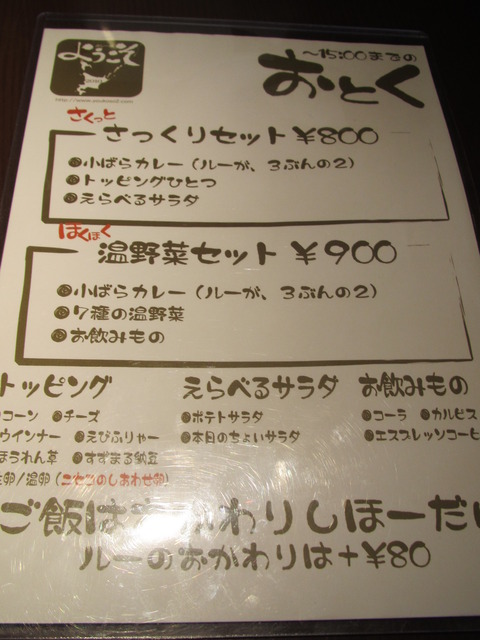 ようこそ
〜15:00までの
おとく
さくっと
さっくりセット ¥800
●小ばらカレー(ルーが、3ぶんの2)
●トッピングひとつ
●えらべるサラダ
ほくほく
温野菜セット ¥900
●小ばらカレー(ルーが、3ぶんの2)
●7種の温野菜
●お飲みもの
トッピング えらべるサラダ お飲みもの
コーン ●チーズ ●ポテトサラダ ●コーラ ●カルピス
ウインナー ●えびふりゃー ●本日のちょいサラダ ●エスプレッソコーヒ
ほうれん草 ●すずまる納豆
卵/温卵(ニセコのしあわせ卵)
ご飯はおかわりしほーだい
ルーのおかわりは+¥80